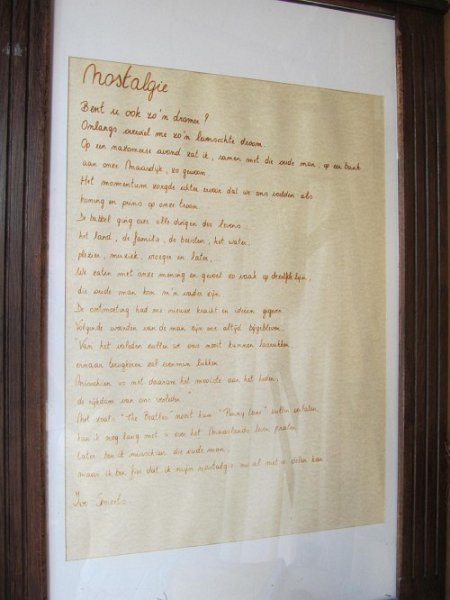 Nostalgie
Bent u ook zo'n dromer?
Onlangs overviel me zo'n levensechte droom.
Op een nazomerse avond zat ik, samen met die oude man, op een bank
aan onze Maasdijk, zo gewoon.
Het momentum zorgde echter ervoor dat we ons voelden als
koning en prins op onze troon.
De babbel ging over alle dingen des levens:
het land, de familie, de beesten, het water,
plezier, muziek, vroeger en later,
We zaten met onze mening en gevoel zo vaak op dezelfde lijn,
die oude man kon m'n vader zijn.
De ontmoeting had ons nieuwe kracht en ideeën gegeven
Volgende woorden van de man zijn me altijd bijgebleven.
"Van het verleden zullen we ons nooit kunnen losrukken
ernaar terugkeren zal evenmin lukken
Misschien is met daarom het mooiste aan het heden,
de rijkdom van ons verleden"
Net zoals "The Beatles" nooit hun "Penny Lane" zullen verlaten,
kan ik nog lang met u over het Maaslands leven praten
Later ben ik misschien die oude man,
maar ik ben fier dat ik mijn nostalgie nu al met u delen kan
Ivo